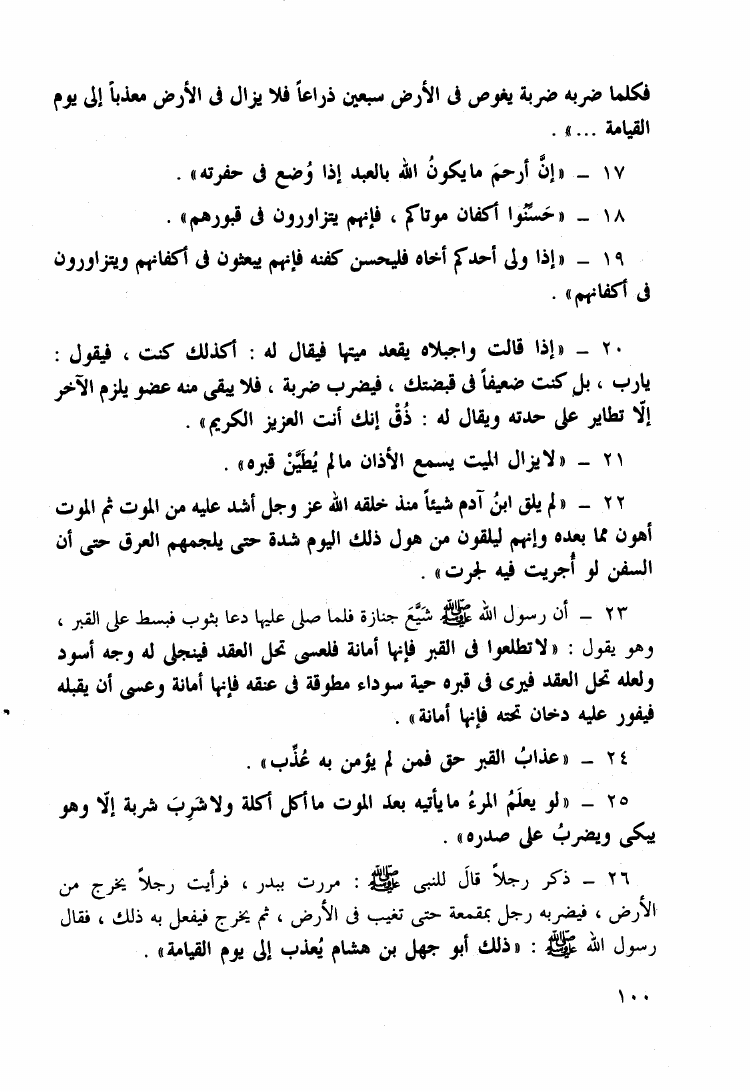 فكلما ضربه ضربة يغوص فى الأرض سبعين ذراعاً فلا يزال فى الأرض معذباً إلى يوم
القيامة ...» .
١٧ – «إنَّ أرحمَ مايكونُ الله بالعبد إذا وُضع فى حفرته» .
١٨ – «حَسِّنُوا أكفان موتاكم ، فإنهم يتزاورون فى قبورهم» .
١٩ – «إذا ولى أحدكم أخاه فليحسن كفنه فإنهم يبعثون فى أكفانهم ويتزاورون
فى أكفانهم» .
٢٠ – «إذا قالت واجبلاه يقعد ميتها فيقال له : أكذلك كنت ، فيقول :
يارب ، بل كنت ضعيفاً فى قبضتك ، فيضرب ضربة ، فلا يبقى منه عضو يلزم الآخر
إلّا تطاير على حدته ويقال له : ذُقْ إنك أنت العزيز الكريم» .
٢١ – «لايزال الميت يسمع الأذان مالم يُطَيَّنْ قبره» .
٢٢ – «لم يلق ابنُ آدم شيئاً منذ خلقه الله عز وجل أشد عليه من الموت ثم الموت
أهون مما بعده وإنهم ليلقون من هول ذلك اليوم شدة حتى يلجمهم العرق حتى أن
السفن لو أُجريت فيه لجرت» .
٢٣ – أن رسول الله ﷺ شَيَّعَ جنازة فلما صلى عليها دعا بثوب فبسط على القبر ،
وهو يقول : «لاتطلعوا فى القبر فإنها أمانة فلعسى تحل العقد فينجلى له وجه أسود
ولعله تحل العقد فيرى فى قبره حية سوداء مطوقة فى عنقه فإنها أمانة وعسى أن يقبله
فيفور عليه دخان تحته فإنها أمانة» .
٢٤ – «عذابُ القبر حق فمن لم يؤمن به عُذِّب» .
٢٥ – «لو يعلَمُ المرءُ مايأتيه بعدَ الموت ماأكل أكلة ولاشَرِبَ شربة إلّا وهو
يبكى ويضربُ على صدره» .
٢٦ – ذكر رجلاً قالَ للنبى ﷺ : مررت ببدر ، فرأيت رجلاً يخرج من
الأرض ، فيضربه رجل بمقمعة حتى تغيب فى الأرض ، ثم يخرج فيفعل به ذلك ، فقال
رسول الله ﷺ : «ذلك أبو جهل بن هشام يُعذب إلى يوم القيامة» .
١٠٠